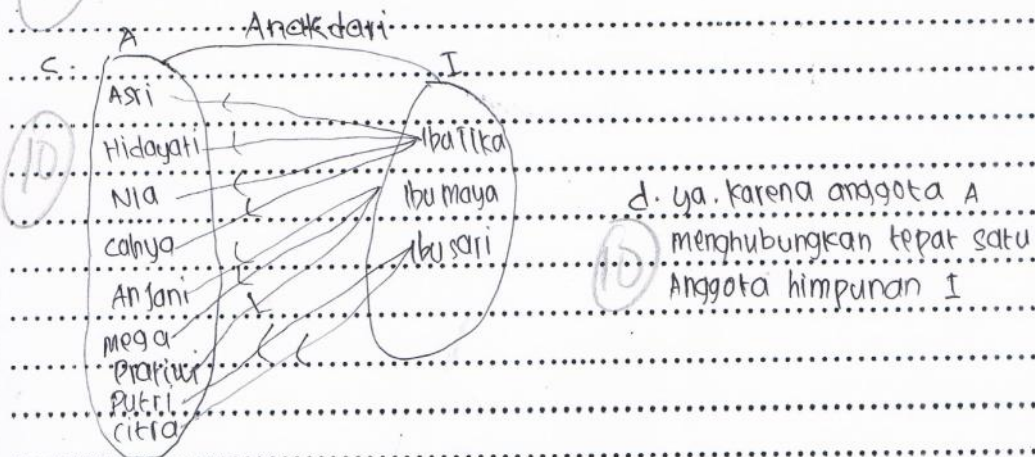 Anak dari
A
c.
I
Asri
Hidayati
Nia
cahya
Anjani
mega
Pratiwi
Putri
citra
10
Ibu Tika
Ibu maya
Ibu sari
d. ya. karena anggota A
menghubungkan tepat satu
Anggota himpunan I
10